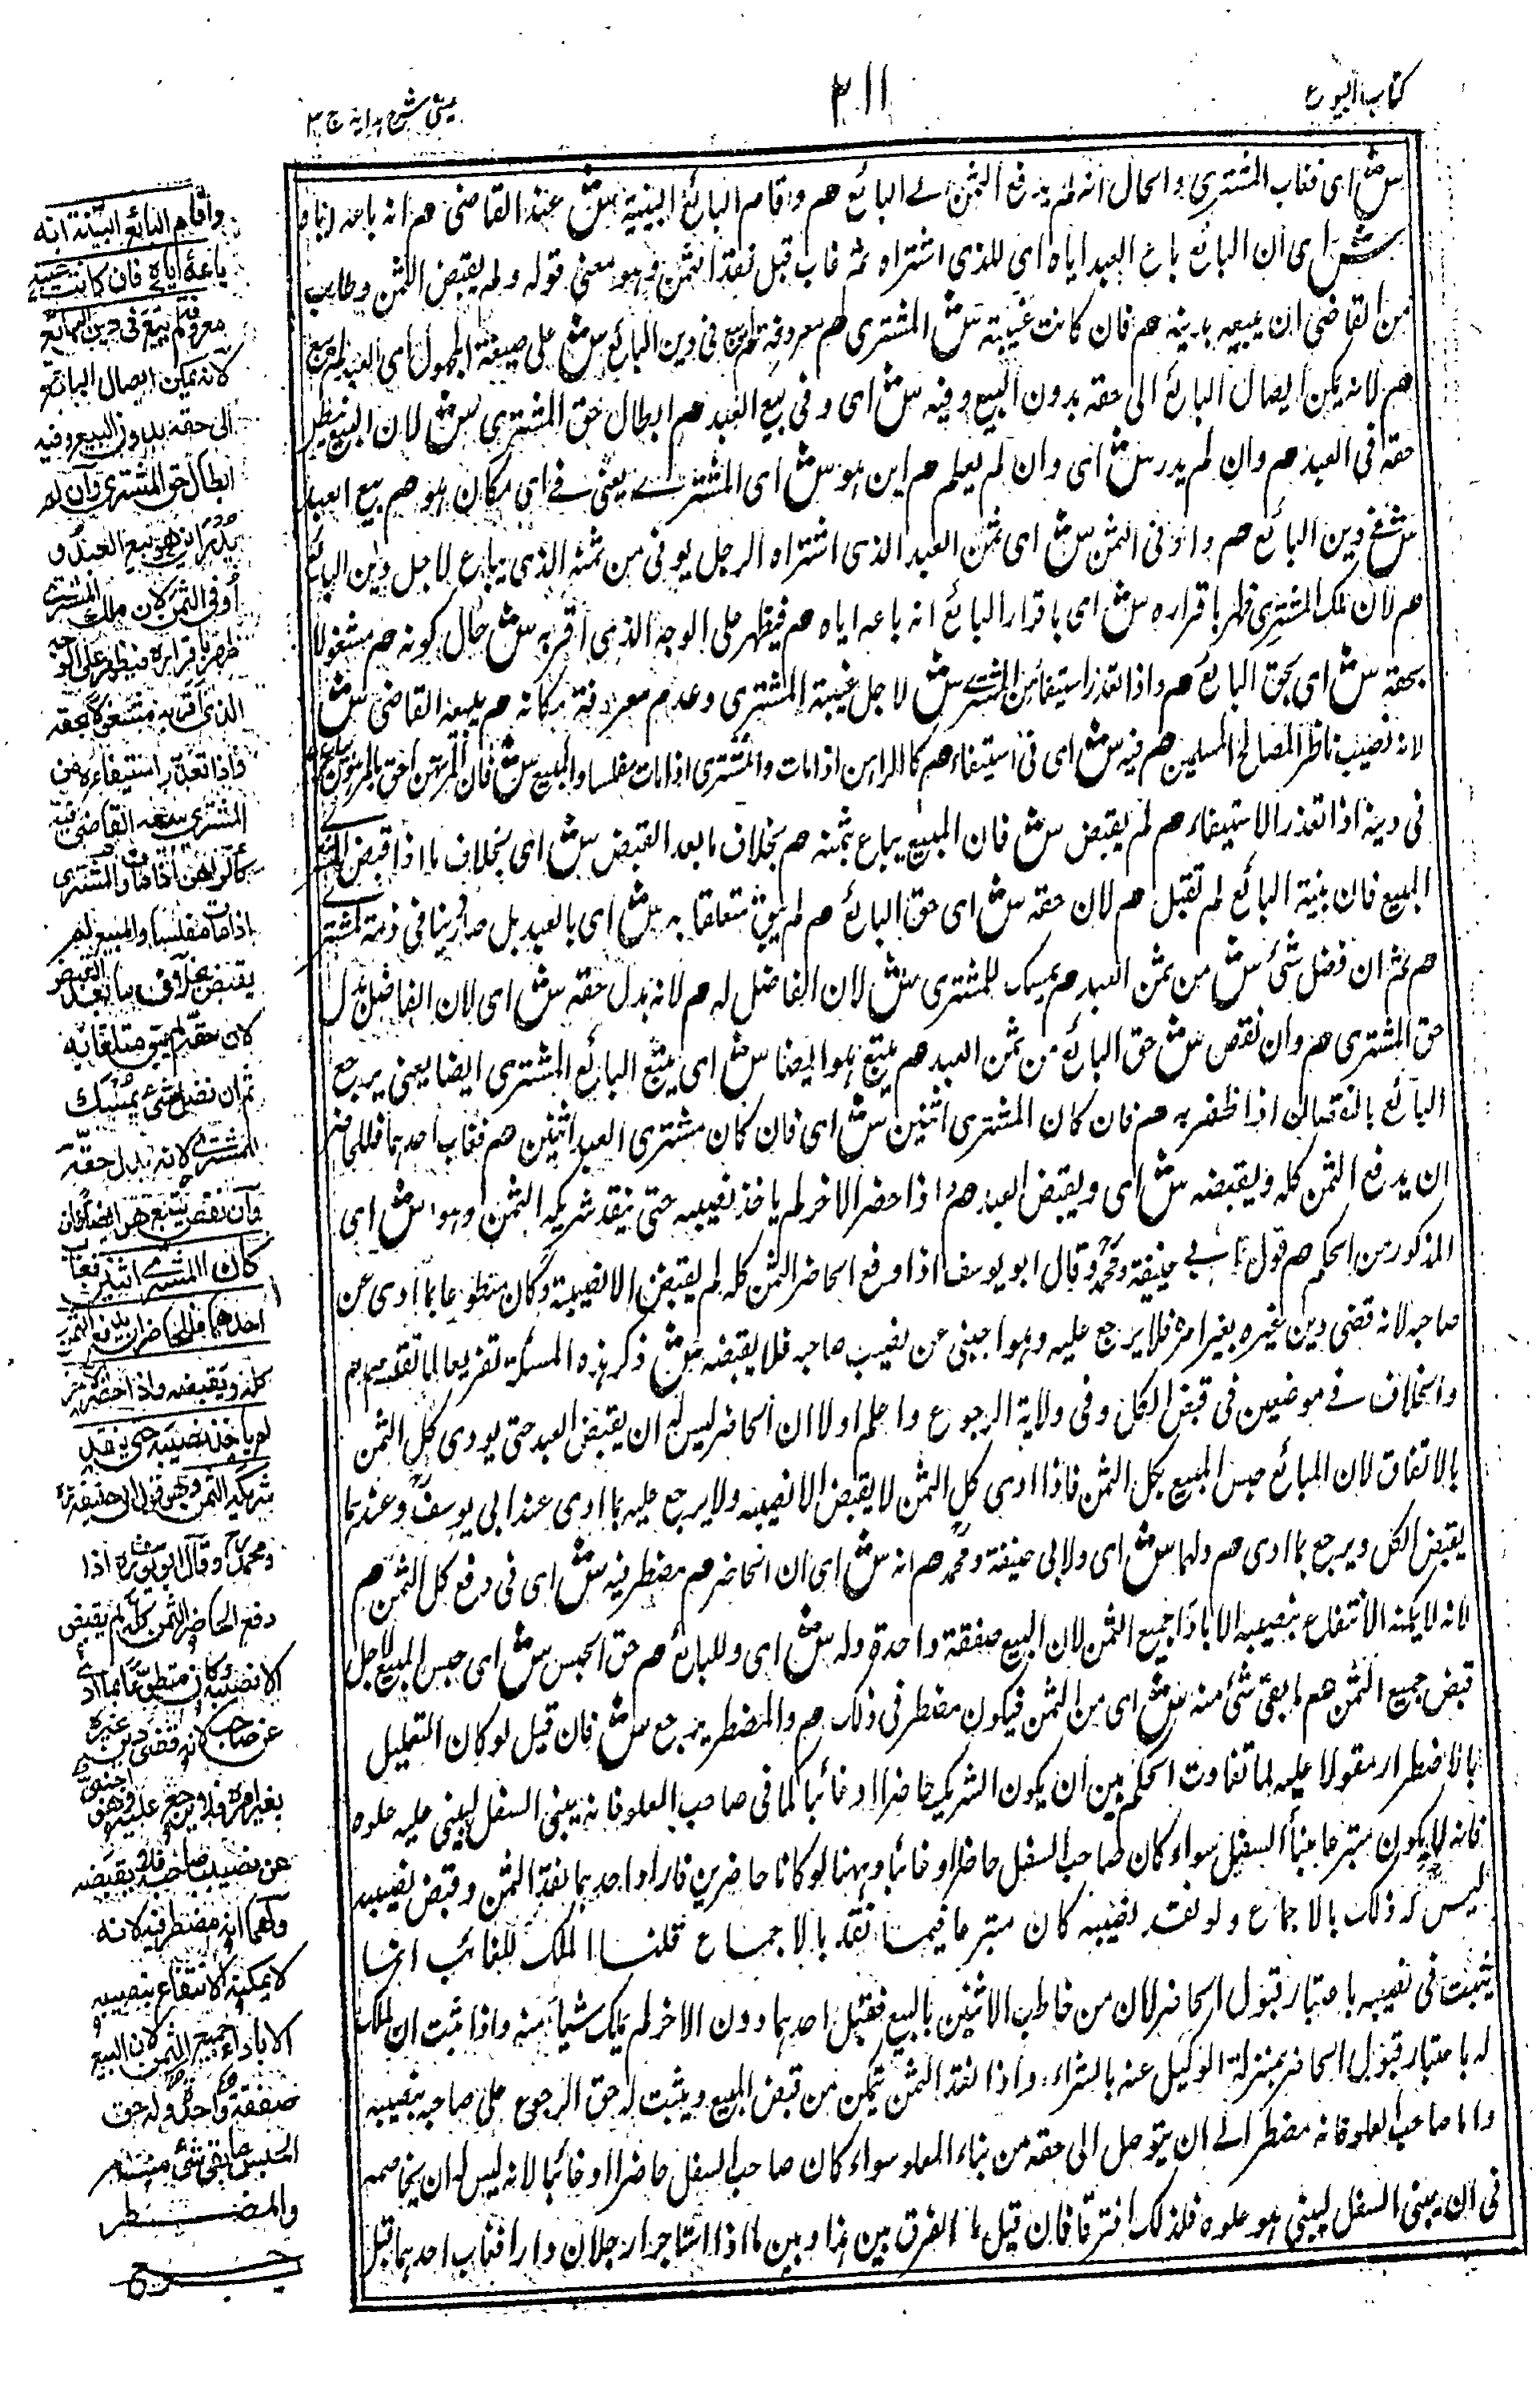 كتاب البيوع
٢١١
عينى شرح هدايه ج ٣
ش اى فغاب المشترى والحال انه لم يدفع الثمن الے البائع هم واقام البائع البينة ش عند القاضى هم انه باعه اياه
ش اى ان البائع باع العبد اياه اى للذي اشتراه ثم غاب قبل نقد الثمن وهو معنى قوله ولم يقبض الثمن وطلب
من القاضى ان يبيعه بدينه هم فان كانت غيبته ش المشترى هم معروفة لم يبع فى دين البائع ش على صيغة المجهول اى العبد لم يبع
هم لانه يمكن ايصال البائع الى حقه بدون البيع وفيه ش اى وفى بيع العبد هم ابطال حق المشترى ش لان البيع يبطل
حقه فى العبد هم وان لم يدر ش اى وان لم يعلم هم اين هو ش اى المشترے يعنى فے اى مكان هو هم بيع العبد
ش فے دين البائع هم واوفى الثمن ش اى ثمن العبد الذى اشتراه الرجل يوفى من ثمنه الذى يباع لاجل دين البائع
هم لان ملك المشترى ظهر باقراره ش اى باقرار البائع انه باعه اياه هم فيظهر على الوجه الذى اقر به ش حال كونه هم مشغولا
بحقه ش اى بحق البائع هم واذا تعذر استيفائه من المشترے ش لاجل غيبة المشترى وعدم معرفة مكانه هم يبيعه القاضى ش
لانه نصيب ناظر المصالح المسلمين هم فيه ش اى فى استيفاء هم كالراهن اذا مات والمشترى اذا مات مفلسا والمبيع ش فان المرتهن احق بالمرهون يباع
فى دينه اذا تعذر الاستيفاء هم لم يقبض ش فان المبيع يباع بثمنه هم بخلاف ما بعد القبض ش اى بخلاف ما اذا قبض المشترے
المبيع فان بينة البائع لم تقبل هم لان حقه ش اى حق البائع هم لم يبق متعلقا به ش اى بالعبد بل صار دينا فى ذمة المشترے
هم ثم ان فضل شئ ش من ثمن العبد هم يمسك للمشترى ش لان الفاضل له هم لانه بدل حقه ش اى لان الفاضل بدل
حق المشترى هم وان نقص ش حق البائع من ثمن العبد هم يتبع هو ايضا ش اى يتبع البائع المشترى ايضا يعنى يرجع
البائع بالنقصان اذا ظفر به هم فان كان المشترى اثنين ش اى فان كان مشترى العبد اثنين هم فغاب احدهما فللحاضر
ان يدفع الثمن كله ويقبضه ش اى ويقبض العبد هم واذا حضر الاخر لم ياخذ نصيبه حتى ينقد شريكه الثمن وهو ش اى
المذكور من الحكم هم قول ابے حنيفة ومحمد وقال ابو يوسف اذا دفع الحاضر الثمن كله لم يقبض الا نصيبه وكان متطوعا بما ادى عن
صاحبه لانه قضى دين غيره بغير امره فلا يرجع عليه وهو اجنبى عن نصيب صاحبه فلا يقبضه ش ذكر هذه المسئلة تفريعا لما تقدم
والخلاف فے موضعين فى قبض الكل وفى ولاية الرجوع واعلم اولا ان الحاضر ليس له ان يقبض العبد حتى يودى كل الثمن
بالاتفاق لان للبائع حبس المبيع بكل الثمن فاذا ادى كل الثمن لا يقبض الا نصيبه ولا يرجع عليه بما ادى عند ابى يوسف وعندهما
يقبض الكل ويرجع بما ادى هم ولهما ش اى ولابى حنيفة ومحمد هم انه ش اى ان الحاضر هم مضطر فيه ش اى فى دفع كل الثمن هم
لانه لا يمكنه الانتفاع بنصيبه الا باداء جميع الثمن لان البيع صفقة واحدة وله ش اى وللبائع هم حق الحبس ش اى حبس المبيع لاجل
قبض جميع الثمن هم ما بقى شئ منه ش اى من الثمن فيكون مضطر فى ذلك هم والمضطر يرجع ش فان قيل لو كان التعليل
بالاضطرار مقولا عليه لما تفاوت الحكم بين ان يكون الشريك حاضرا او غائبا كما فى صاحب العلو فانه يبنى السفل ليبنى عليه علوه
فانه لا يكون متبرعا ببناء السفل سواء كان صاحب السفل حاضرا او غائبا وههنا لو كانا حاضرين فاراد احدهما نقد الثمن وقبض نصيبه
ليس له ذلك بالاجماع ولو نقد نصيبه كان متبرعا فيما نقد بالاجماع قلنا الملك للغائب انما
يثبت فى نصيبه باعتبار قبول الحاضر لان من خاطب الاثنين بالبيع فقبل احدهما دون الاخر لم يملك شيأ منه واذا ثبت ان الملك
له باعتبار قبول الحاضر بمنزلة الوكيل عنه بالشراء واذا نقد الثمن يتمكن من قبض المبيع ويثبت له حق الرجوع على صاحبه بنصيبه
واما صاحب العلو فانه مضطر الے ان يتوصل الى حقه من بناء العلو سواء كان صاحب السفل حاضرا او غائبا لانه ليس له ان يخاصمه
فى ان يبنى السفل ليبنى هو علوه فلذلك افترقا فان قيل ما الفرق بين هذا وبين ما اذا استاجر رجلان دارا فغاب احدهما قبل
واقام البائع البينة انه
باعه اياه فان كانت غيبته
معروفة لم يبع فى دين البائع
لانه يمكن ايصال البائع
الى حقه بدون البيع وفيه
ابطال حق المشترى وان لم
يدر اين هو بيع العبد و
اوفى الثمن لان ملك المشترے
ظهر باقراره فيظهر على الوجه
الذى اقر به مشغولا بحقه
واذا تعذر استيفاءه من
المشترى يبيعه القاضى فيه
كالراهن اذا مات والمشترى
اذا مات مفلسا والمبيع لم
يقبض بخلاف ما بعد القبض
لان حقه لم يبق متعلقا به
ثم ان فضل شئ يمسك
للمشترے لانه بدل حقه
وان نقص يتبع هو ايضا فان
كان المشترے اثنين فغاب
احدهما فللحاضر ان يدفع الثمن
كله ويقبضه واذا حضر الاخر
لم ياخذ نصيبه حتى ينقد
شريكه الثمن وهو قول ابى حنيفة
ومحمد وقال ابو يوسف اذا
دفع الحاضر الثمن كله لم يقبض
الا نصيبه وكان متطوعا بما ادے
عن صاحبه لانه قضى دين غيره
بغير امره فلا يرجع عليه وهو اجنبى
عن نصيب صاحبه فلا يقبضه
ولهما انه مضطر فيه لانه
لا يمكنه الانتفاع بنصيبه
الا باداء جميع الثمن لان البيع
صفقة واحدة وله حق
الحبس ما بقى شئ منه
والمضطر
يرجع